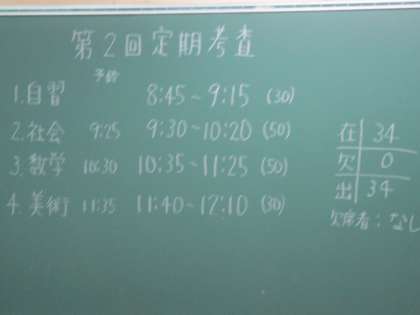 第2回定期考査
予鈴
1.自習 8:45~9:15 (30)
2.社会 9:25 9:30~10:20 (50)
3.数学 10:30 10:35~11:25 (50)
4.美術 11:35 11:40~12:10 (30)
在 34
欠 0
出 34
欠席者:なし